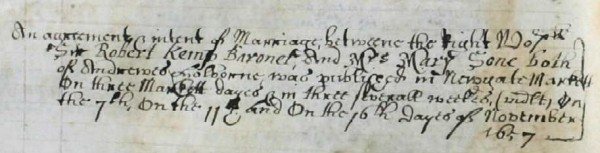 An agreement & intent of Marriage, betweene the Right
Sir Robert Kemp Baronet, And Mrs Mary Sone both
of Andrewes was published in Newgate Markett
On three Markett dayes & in three severall weekes, (vidlt) On
the 7th, On the 11th, and On the 16th dayes of November
1657